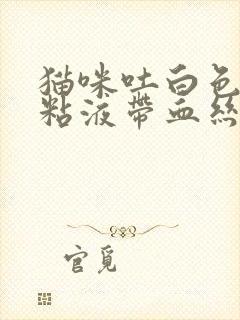 猫咪吐白色
粘液帶血絲
官覓